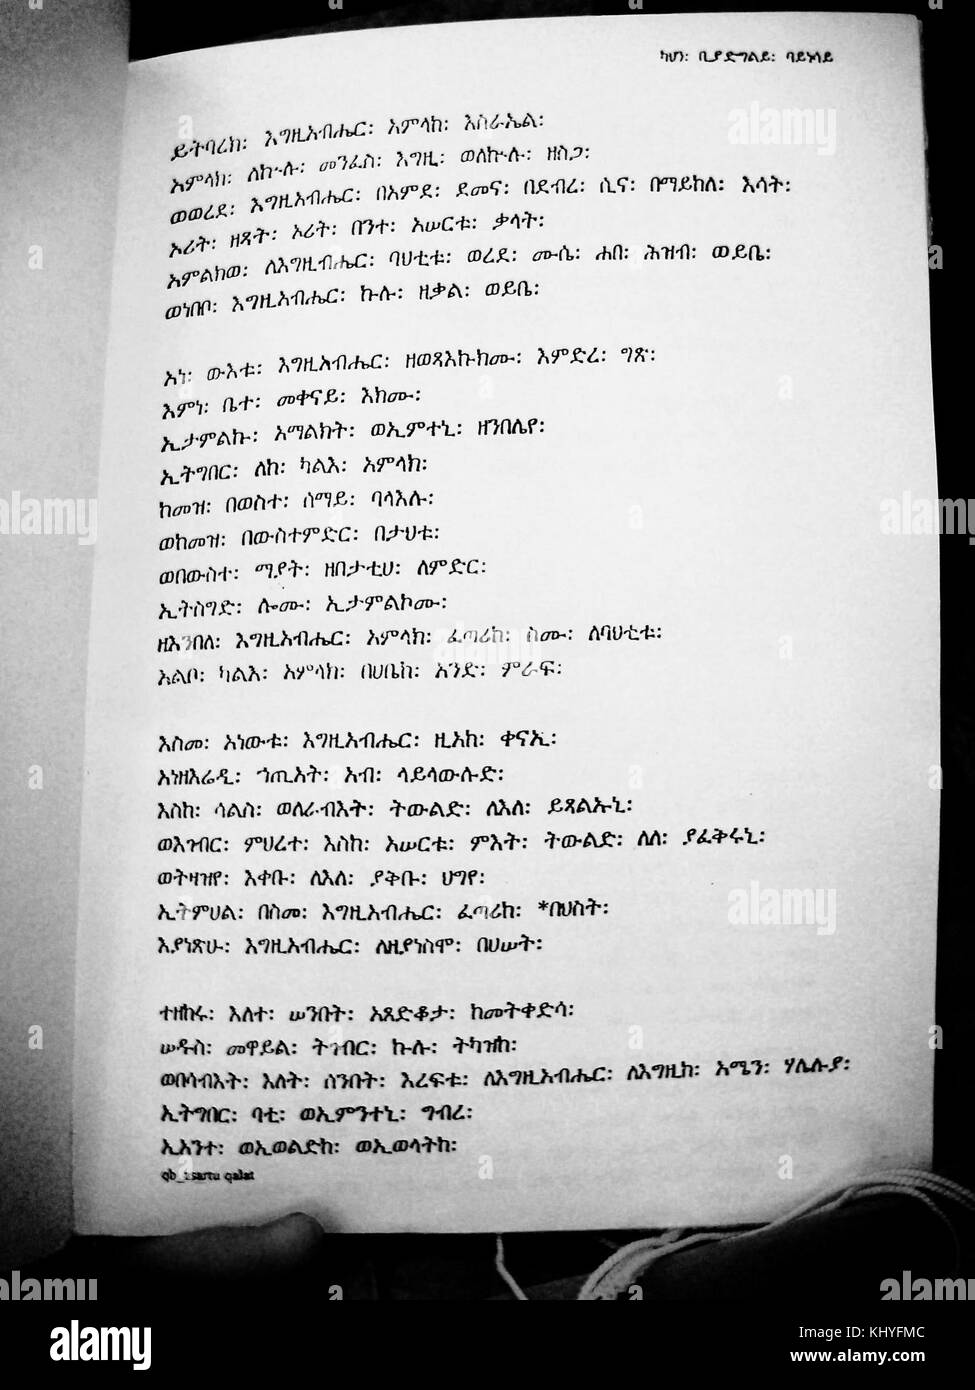 ካህን፡ ቢያድግልይ፡ ባይነሳይ
ይትባረክ፡ እግዚአብሔር፡ አምላከ፡ እስራኤል፡
አምላክ፡ ለኵሉ፡ መንፈስ፡ እግዚ፡ ወለኵሉ፡ ዘስጋ፡
ወወረደ፡ እግዚአብሔር፡ በአምደ፡ ደመና፡ በደብረ፡ ሲና፡ በማይከለ፡ እሳት፡
ኦሪት፡ ዘጸት፡ ኦሪት፡ በንተ፡ አሠርቱ፡ ቃላት፡
አምልክወ፡ ለእግዚብሔር፡ ባህቲቱ፡ ወረደ፡ ሙሴ፡ ሐበ፡ ሕዝብ፡ ወይቤ፡
ወነበቦ፡ እግዚአብሔር፡ ኩሉ፡ ዘቃል፡ ወይቤ፡
አነ፡ ውእቱ፡ እግዚአብሔር፡ ዘወጻእኩክሙ፡ እምድረ፡ ግጽ፡
እምነ፡ ቤተ፡ መቀናይ፡ እክሙ፡
ኢታምልኩ፡ አማልክት፡ ወኢምተኒ፡ ዘንበሌየ፡
ኢትግበር፡ ለከ፡ ካልእ፡ አምላክ፡
ከመዝ፡ በወስተ፡ ሰማይ፡ ባላእሉ፡
ወከመዝ፡ በውስተምድር፡ በታህቱ፡
ወበውስተ፡ ማያት፡ ዘበታቲሀ፡ ለምድር፡
ኢትስግድ፡ ሎሙ፡ ኢታምልኮሙ፡
ዘእንበለ፡ እግዚአብሔር፡ አምላክ፡ ፈጣሪከ፡ ስሙ፡ ለባህቲቱ፡
አልቦ፡ ካልእ፡ አምላክ፡ በሀቤከ፡ አንድ፡ ምራፍ፡
እስመ፡ አነውቱ፡ እግዚአብሔር፡ ዚአከ፡ ቀናኢ፡
አነዘእሬዲ፡ ኀጢአት፡ አብ፡ ላይላውሉድ፡
እስከ፡ ሳልስ፡ ወለራብእት፡ ትውልድ፡ ለእለ፡ ይጻልኡኒ፡
ወእገብር፡ ምህረተ፡ እስከ፡ አሠርቱ፡ ምእት፡ ትውልድ፡ ለለ፡ ያፈቅሩኒ፡
ወትዛዝየ፡ እቀቡ፡ ለእለ፡ ያቅቡ፡ ህግየ፡
ኢትምሀል፡ በስመ፡ እግዚአብሔር፡ ፈጣሪከ፡ *በህስት፡
እያነጽሁ፡ እግዚአብሔር፡ ለዚያነስሞ፡ በሀሠት፡
ተዘከሩ፡ እለተ፡ ሠንበት፡ አጸድቆታ፡ ከመትቀድሳ፡
ሠዱስ፡ መዋይል፡ ትገብር፡ ኩሉ፡ ትካዝከ፡
ወበሳብእት፡ እለት፡ ሰንበት፡ እረፍቱ፡ ለእግዚአብሔር፡ ለእግዚከ፡ አሜን፡ ሃሌሉያ፡
ኢትግበር፡ ባቲ፡ ወኢምንተኒ፡ ግብረ፡
ኢአንተ፡ ወኢወልድከ፡ ወኢወላትከ፡
qalat
alamy
KHYFMC
www.alamy.com